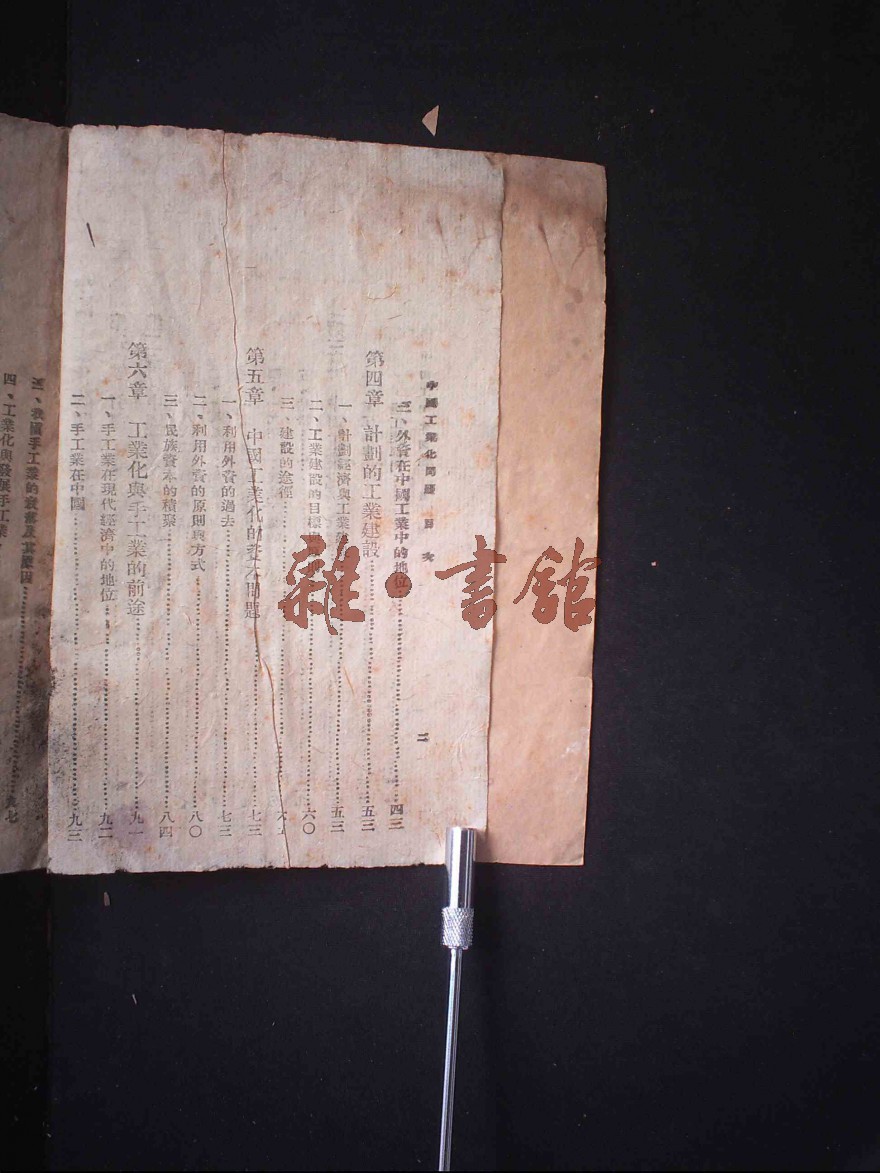 中國工業化問題　目次
二
三、外資在中國工業中的地位……四三
第四章　計劃的工業建設……五三
一、計劃經濟與工業……五三
二、工業建設的目標……六〇
三、建設的途徑……六
第五章　中國工業化的資本問題……七三
一、利用外資的過去……七三
二、利用外資的原則與方式……八〇
三、民族資本的積聚……八四
第六章　工業化與手工業的前途……九一
一、手工業在現代經濟中的地位……九二
二、手工業在中國……九三
三、我國手工業的衰落及其原因……九七
四、工業化與發展手工業
雜·書館